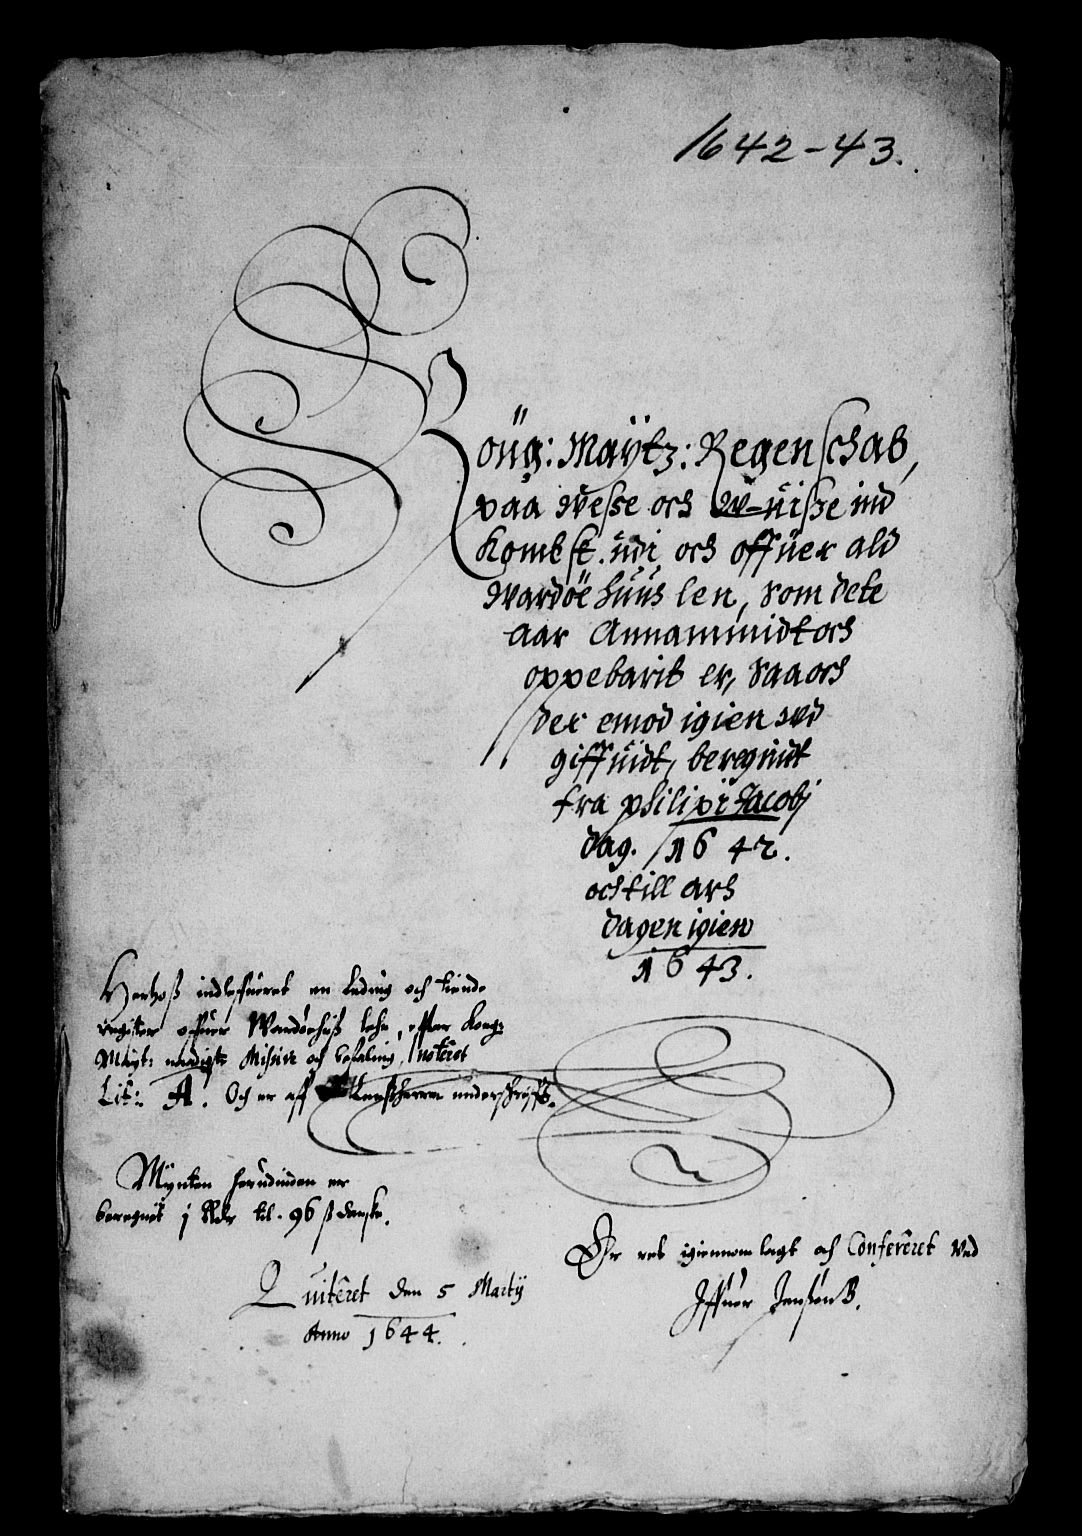 1642-43.
Köng: Maÿtz: Regenschab,
paa Wesse och W-uisse ind
Kombst. udi och offuer ald
Wardöehuus len, Som dete
aar Annammidt och
oppebarit er, Saa och
der emod igien vd
giffuidt, beregnidt
fra philipi Jacobj
dag. 1642.
och till ars
dagen igien
1643.
Herhoß indleffueret en Leding och tiende
register offuer Wardöehuß lehn, effter Kong:
Maÿt: naadigste Missive och befaling, Noteret
Lit: A. Och er aff Lensherren underschrefft.
Mÿnten herudinden er
beregnet j Rdr til 96 ß danske.
Quiteret den 5 Martij
Anno 1644.
Er ret igiennom lagt och Confereret Ved
Iffuer Jensøn B.